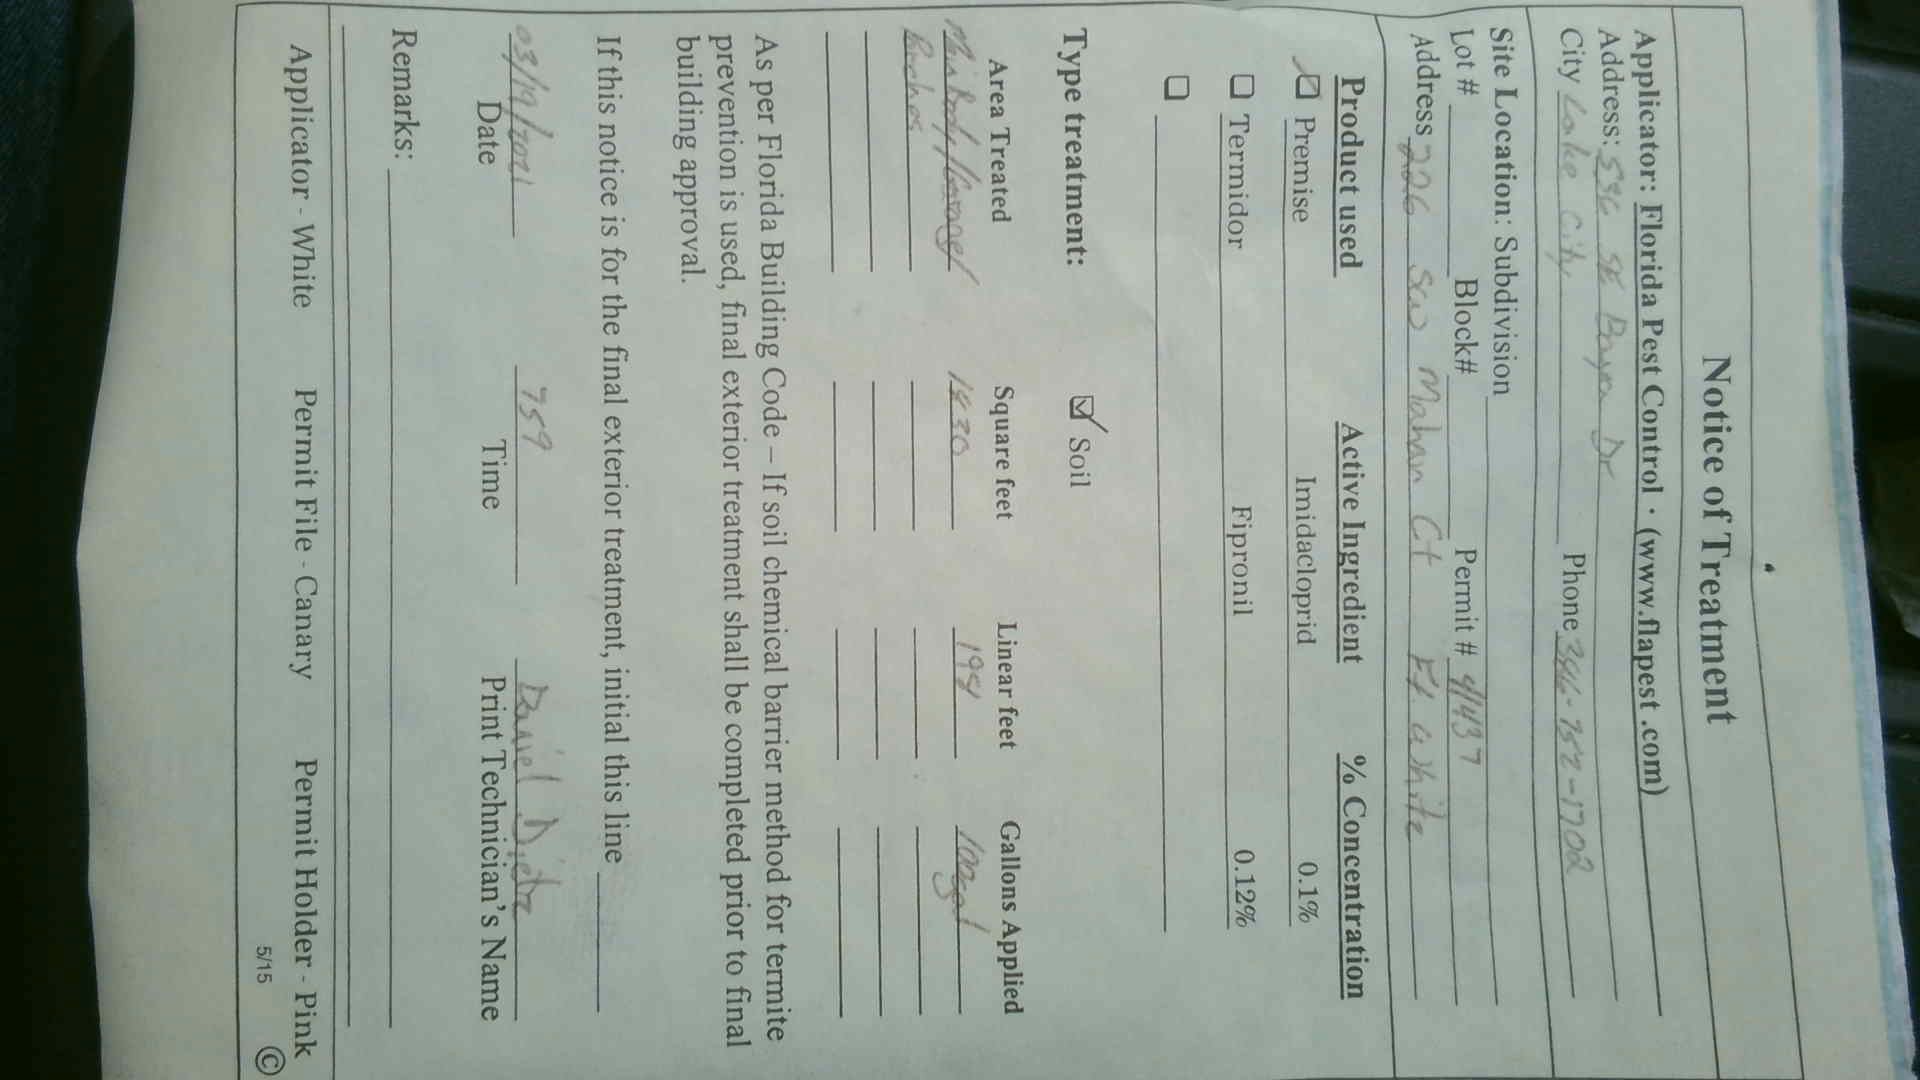 Notice of Treatment
Applicator: Florida Pest Control · (www.flapest.com)
Address: 536 SE Baya Dr
City Lake City Phone 386-752-1702
Site Location: Subdivision
Lot # Block# Permit # 41437
Address 226 SW Mahan Ct Ft White
Product used Active Ingredient % Concentration
☑ Premise Imidacloprid 0.1%
☐ Termidor Fipronil 0.12%
☐
Type treatment: ☑ Soil
Area Treated Square feet Linear feet Gallons Applied
Main Body / 1430 194 100gal
Porches
As per Florida Building Code – If soil chemical barrier method for termite
prevention is used, final exterior treatment shall be completed prior to final
building approval.
If this notice is for the final exterior treatment, initial this line
03/19/2021 759 Daniel
Date Time Print Technician's Name
Remarks:
Applicator - White Permit File - Canary Permit Holder - Pink
5/15 ©